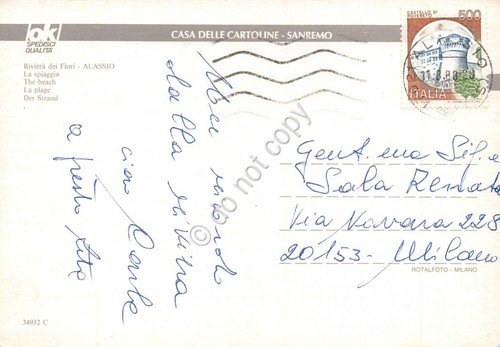 ok
SPEDISCI
QUALITÀ
CASA DELLE CARTOLINE - SANREMO
Riviera dei Fiori - ALASSIO
La spiaggia
The beach
La plage
Der Strand
CASTELLO DI
500
ALASSIO
11.8.88
ITALIA
Un ricordo
dalla riviera
ciao Carla
a presto
Gent.ma Sig.
Sala Renata
Via Novara 228
20153 - Milano
ROTALFOTO - MILANO
34932 C
do not copy